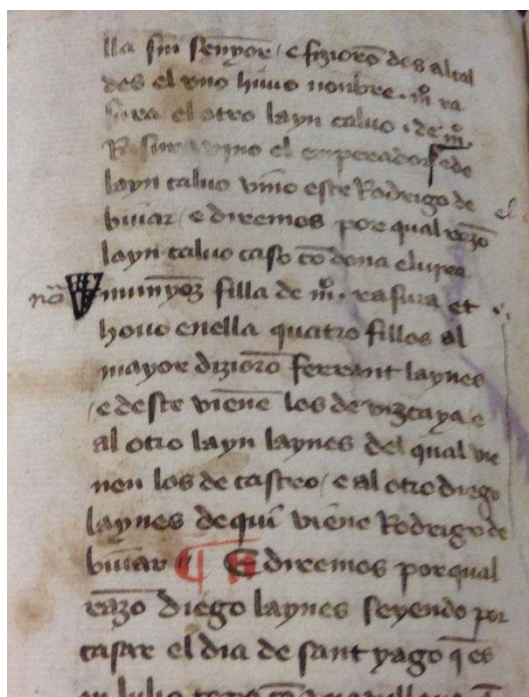 lla sin senyor / e fizioro des alcal
des el vno huuo nonbre . mº ra
sura el otro layn caluo . de mº
Rasura vino el emperador / e de
layn caluo vino este Rodrigo de
biuar / e diremos por qual razo
el
layn caluo caso co dona eluira
nō
nunnyoz filla de mº . rasura et
houo enella quatro fillos al
mayor dizioro ferrant laynes
/ e deste viene los de vizcaya / e
al otro layn laynes del qual vie
nen los de castro / e al otro diego
laynes de qui viene Rodrigo de
biuar ¶ E diremos por qual
razo diego laynes seyendo por
casar el dia de sant yago q es